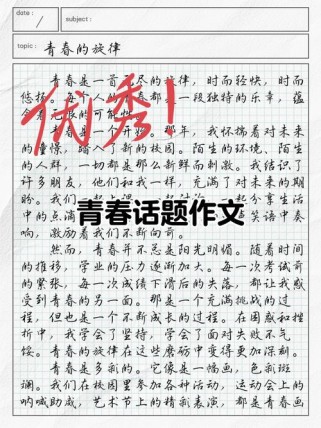 date: /
subject:
topic: 青春的旋律
青春是一首无尽的旋律，时而轻快，时而
悠扬。每个人的青春都是一段独特的乐章，蕴
含着无限的可能性。
优秀！
青春是一个开始。那年，我怀揣着对未来
的憧憬，踏入了新的校园。陌生的环境、陌生
的人群，一切都是那么新鲜而刺激。我结识了
许多朋友，他们和我一样，充满了对未来的期
盼。我们一起分享生活
青春话题作文
中的点滴，笑语中奏
响，激励着我们不断向前。
然而，青春并不总是阳光明媚。随着时间
的推移，学业的压力逐渐加大。每一次考试前
的紧张，每一次成绩下滑后的失落，都让我感
受到青春的另一面。那是一个充满挑战的过
程，但也是一个不断成长的过程。在困惑和挫
折中，我学会了坚持，学会了面对失败不气
馁。青春的旋律在这些磨砺中变得更加深刻。
青春是多彩的。它像是一幅画，色彩斑
斓。我们在校园里参加各种活动，运动会上的
呐喊助威，艺术节上的精彩表演，都是青春画